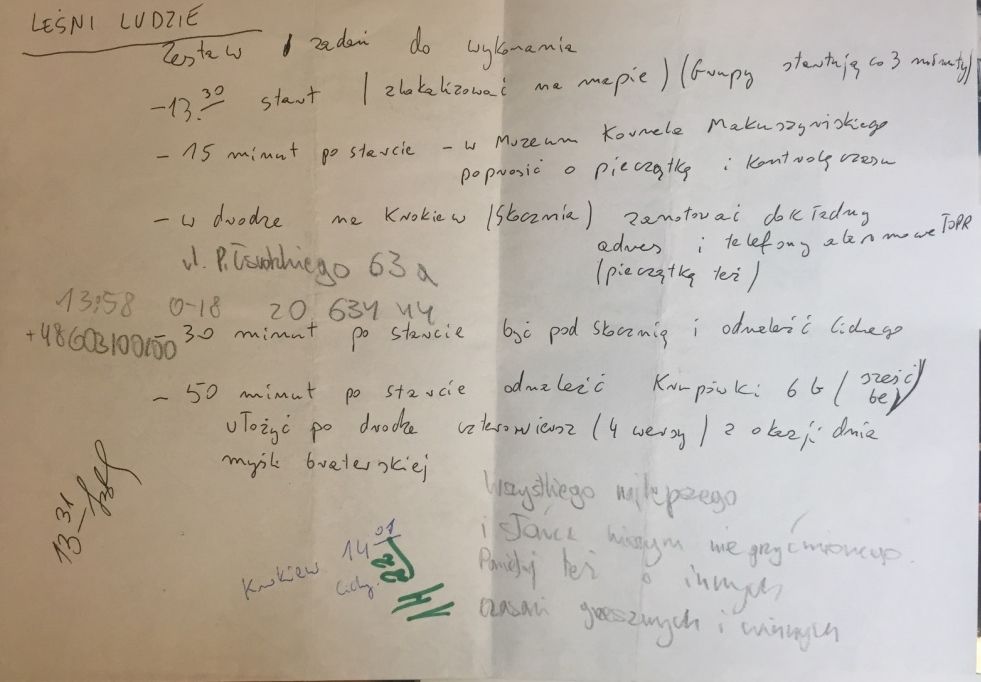 LEŚNI LUDZIE
Zestaw zadań do wykonania
- 13.30 start (zlokalizować na mapie) (Grupy startują co 3 minuty)
- 15 minut po starcie - w Muzeum Kornela Makuszyńskiego
poprosić o pieczątkę i kontrolę czasu
- w drodze na Krokiew (Skocznia) zanotować dokładny
adres i telefony alarmowe TOPR
(pieczątkę też)
ul. Piłsudskiego 63a
13:58 0-18 20 634 44
+48603100100
30 minut po starcie być pod skocznią i odnaleźć Cichego
- 50 minut po starcie odnaleźć Krupówki 6 b (sześć be)
ułożyć po drodze czterowiersz (4 wersy) z okazji dnia
myśli braterskiej
Wszystkiego najlepszego
i słońca niczym nie przyćmionego.
Pamiętaj też o innych
czasami grzesznych i winnych
13 31
Krokiew 14 01
Cichy.